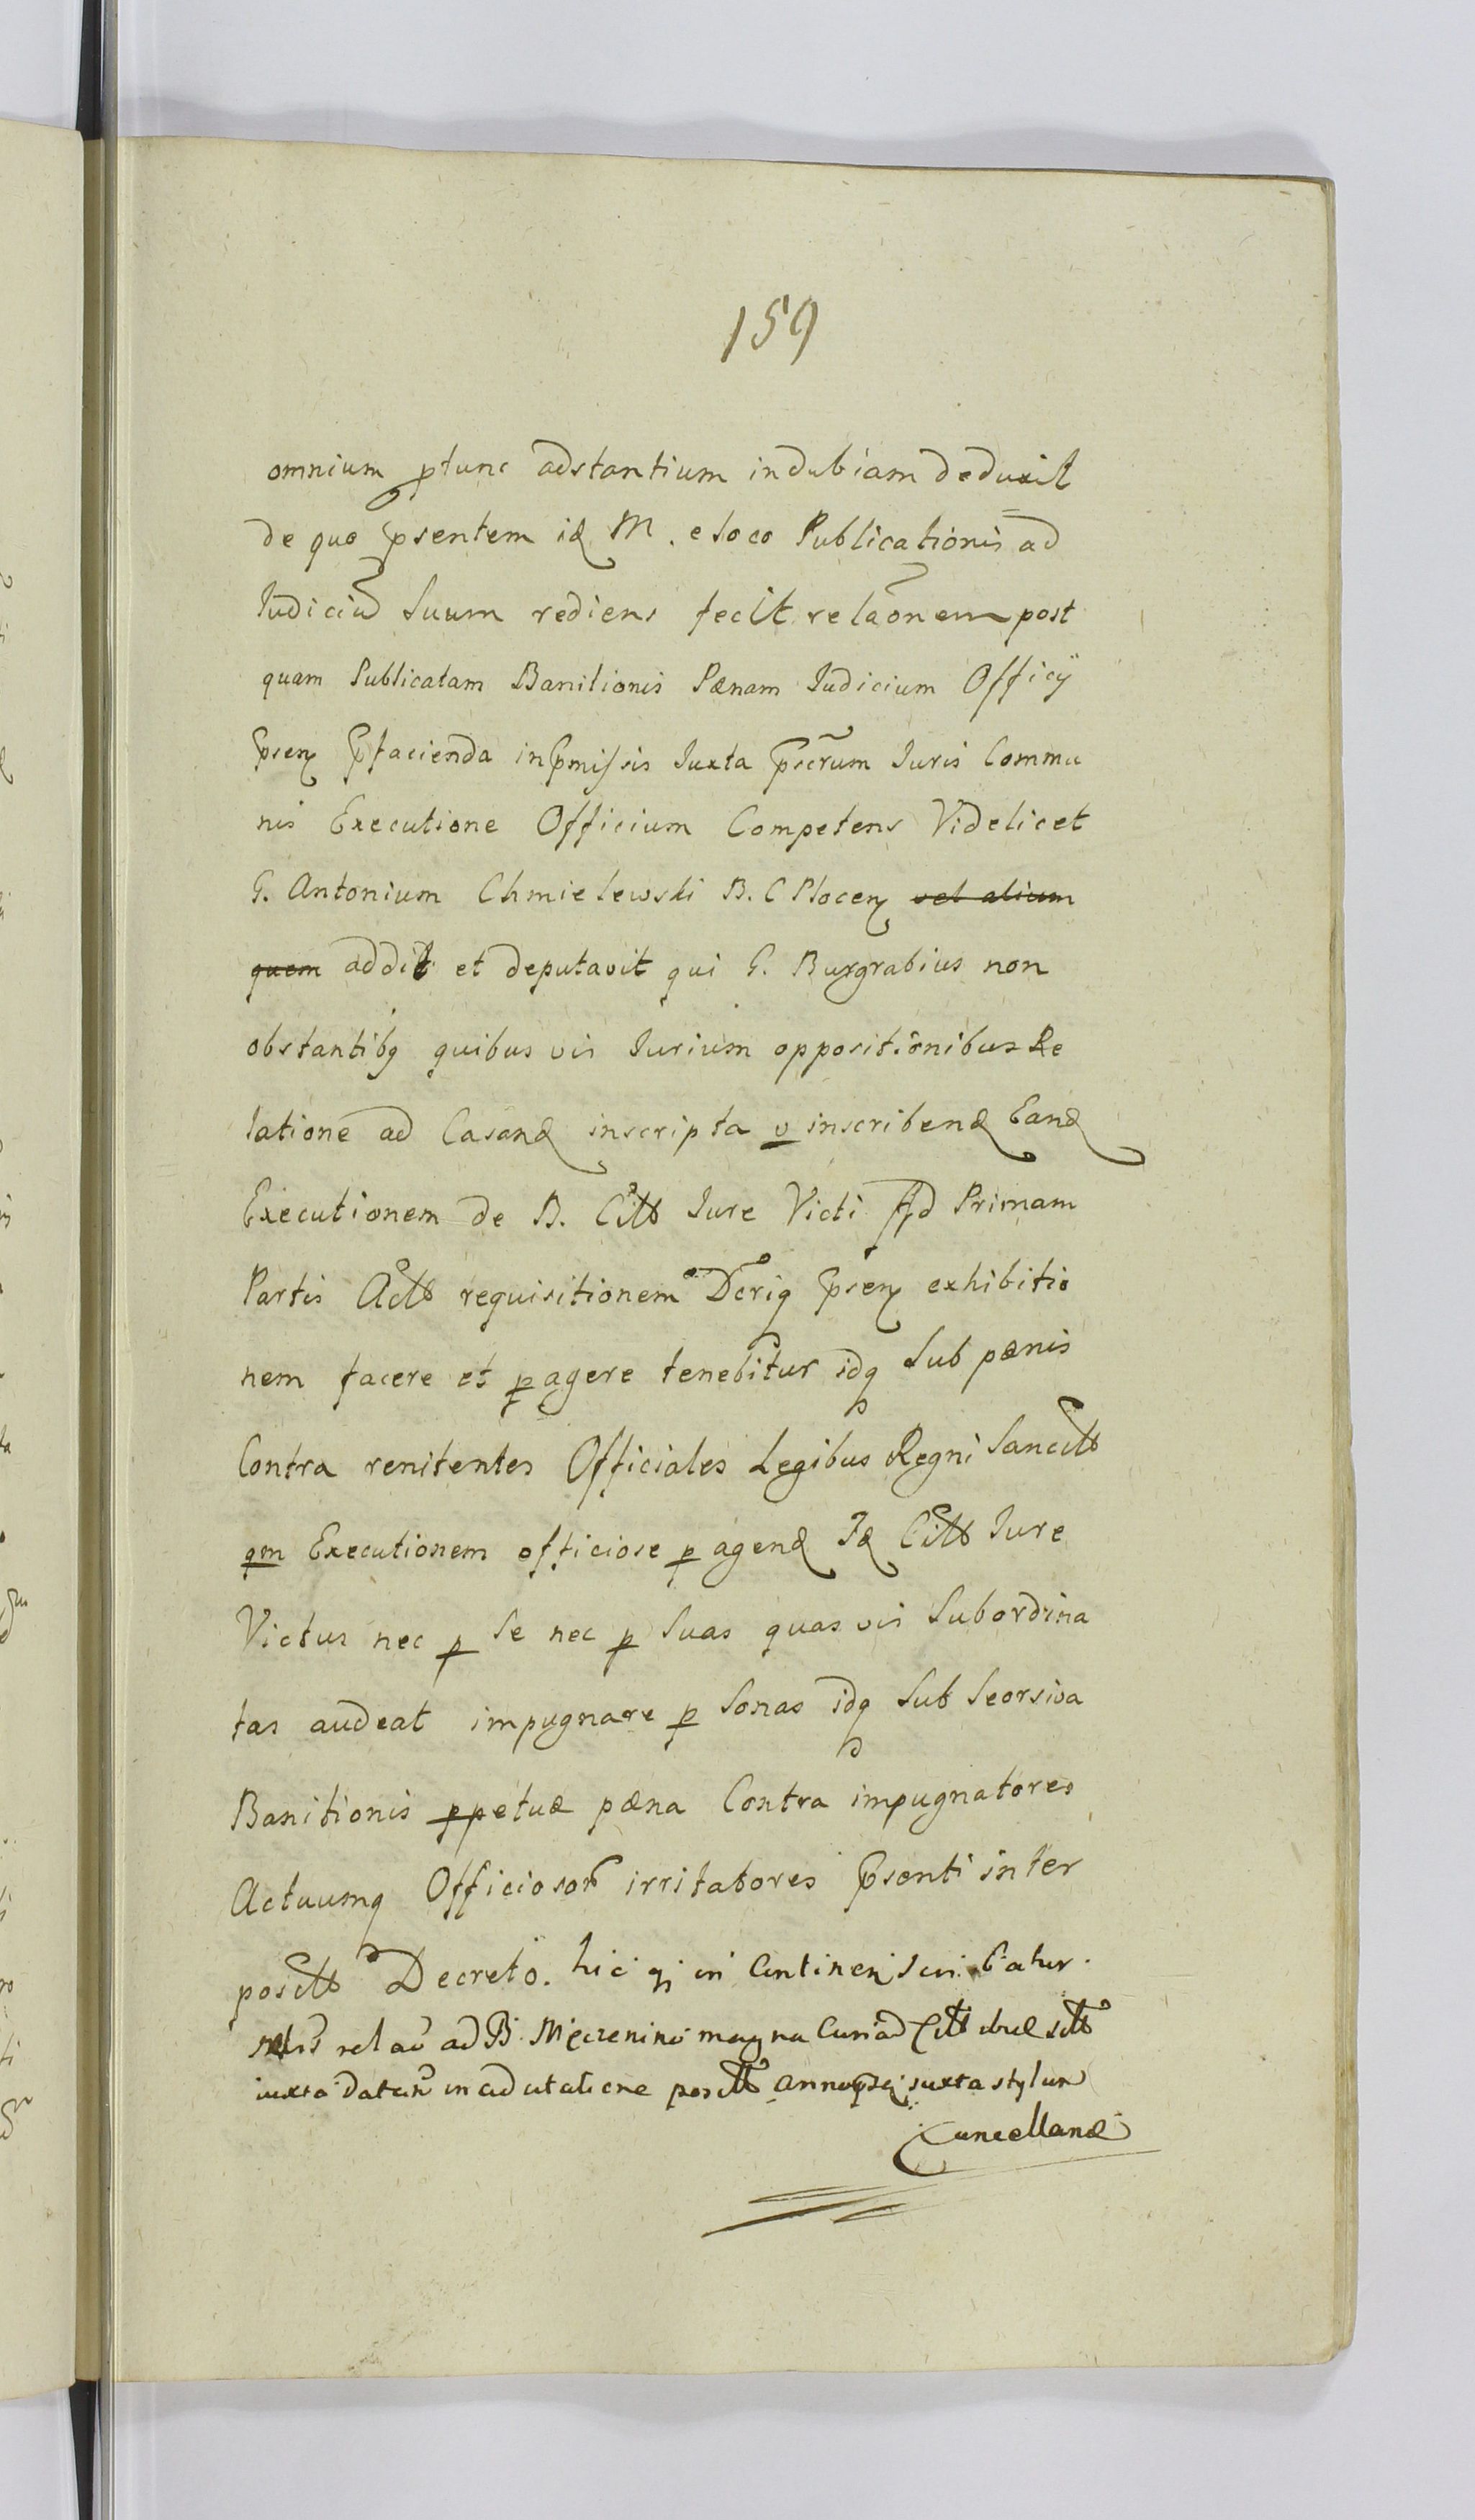 159
omnium ptunc adstantium indubiam deduxit
de quo psentem id M. e loco Publicationis ad
Iudiciu Suum rediens fecit relaonem post
quam Publicatam Banitionis Pænam Iudicium Officij
psen pfacienda in pmissis Iuxta pscrum Iuris Commu
nis Executione Officium Competens Videlicet
G. Antonium Chmielewski B. C Plocen vel alium
quem addit et deputavit qui G. Burgrabius non
obstantibq quibus vis Iurium oppositionibus Re
latione ad Casand inscripta v inscribend Eand
Executionem de B. Citt Iure Victi Ad Primam
Partis Actt requisitionem Dcriq psen exhibitio
nem facere et p agere tenebitur idq Sub pænis
Contra renitentes Officiales Legibus Regni Sancitt
qm Executionem officiose p agend Id Citt Iure
Victus nec p Se nec p Suas quas vis Subordina
tas audeat impugnare p Sonas idq Sub Seorsiva
Banitionis ppetuæ pæna Contra impugnatores
Actuumq Officiosor irritatores psenti inter
positt Decreto. hic q in Continen Scribatur.
relao ad B. magna Citt
iuxta Datam in positt Anno iuxta stylum
Cancellariæ